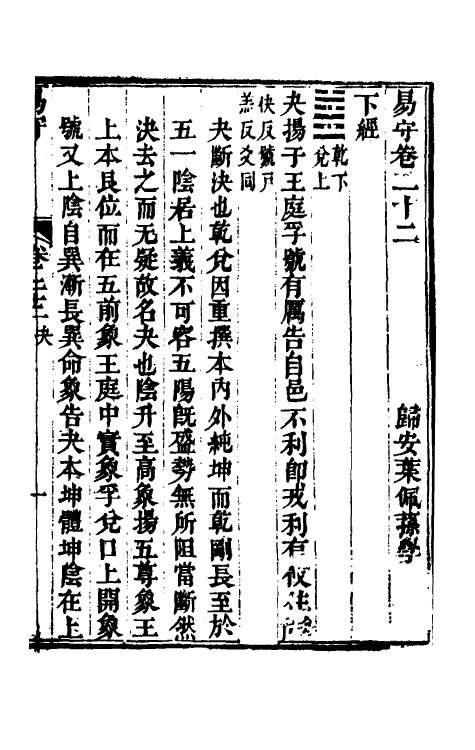 易守卷二十二
歸安葉佩蓀學
下經
乾下
兌上
夬揚于王庭孚號有厲告自邑不利即戎利有攸往
夬反號戶
羔反爻同
夬斷決也乾兌因重撰本內外純坤而乾剛長至於
五一陰居上義不可容五陽旣盛勢無所阻當斷然
決去之而无疑故名夬也陰升至高象揚五尊象王
上本艮位而在五前象王庭中實象孚兌口上開象
號又上陰自巽漸長巽命象告夬本坤體坤陰在上
易守
卷二十二 夬
一